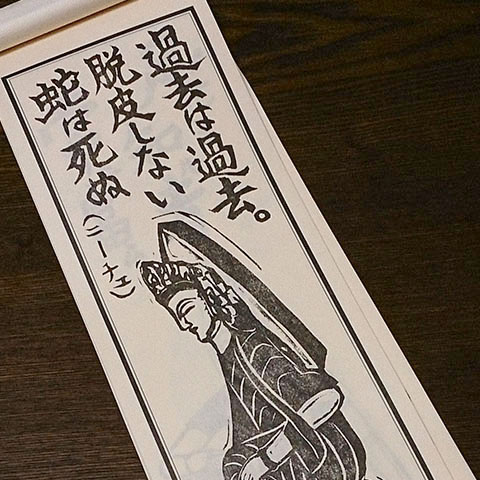 過去は過去。
脱皮しない
蛇は死ぬ
(ニーチェ)